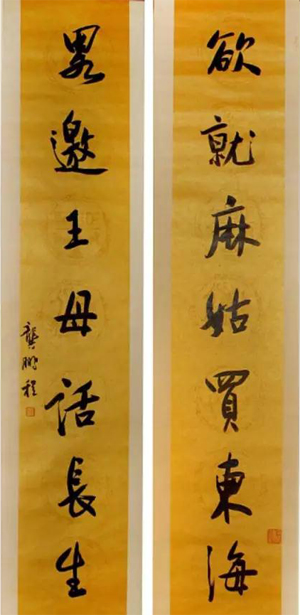 欲就麻姑買東海
畧邀王母話長生
龔鵬程